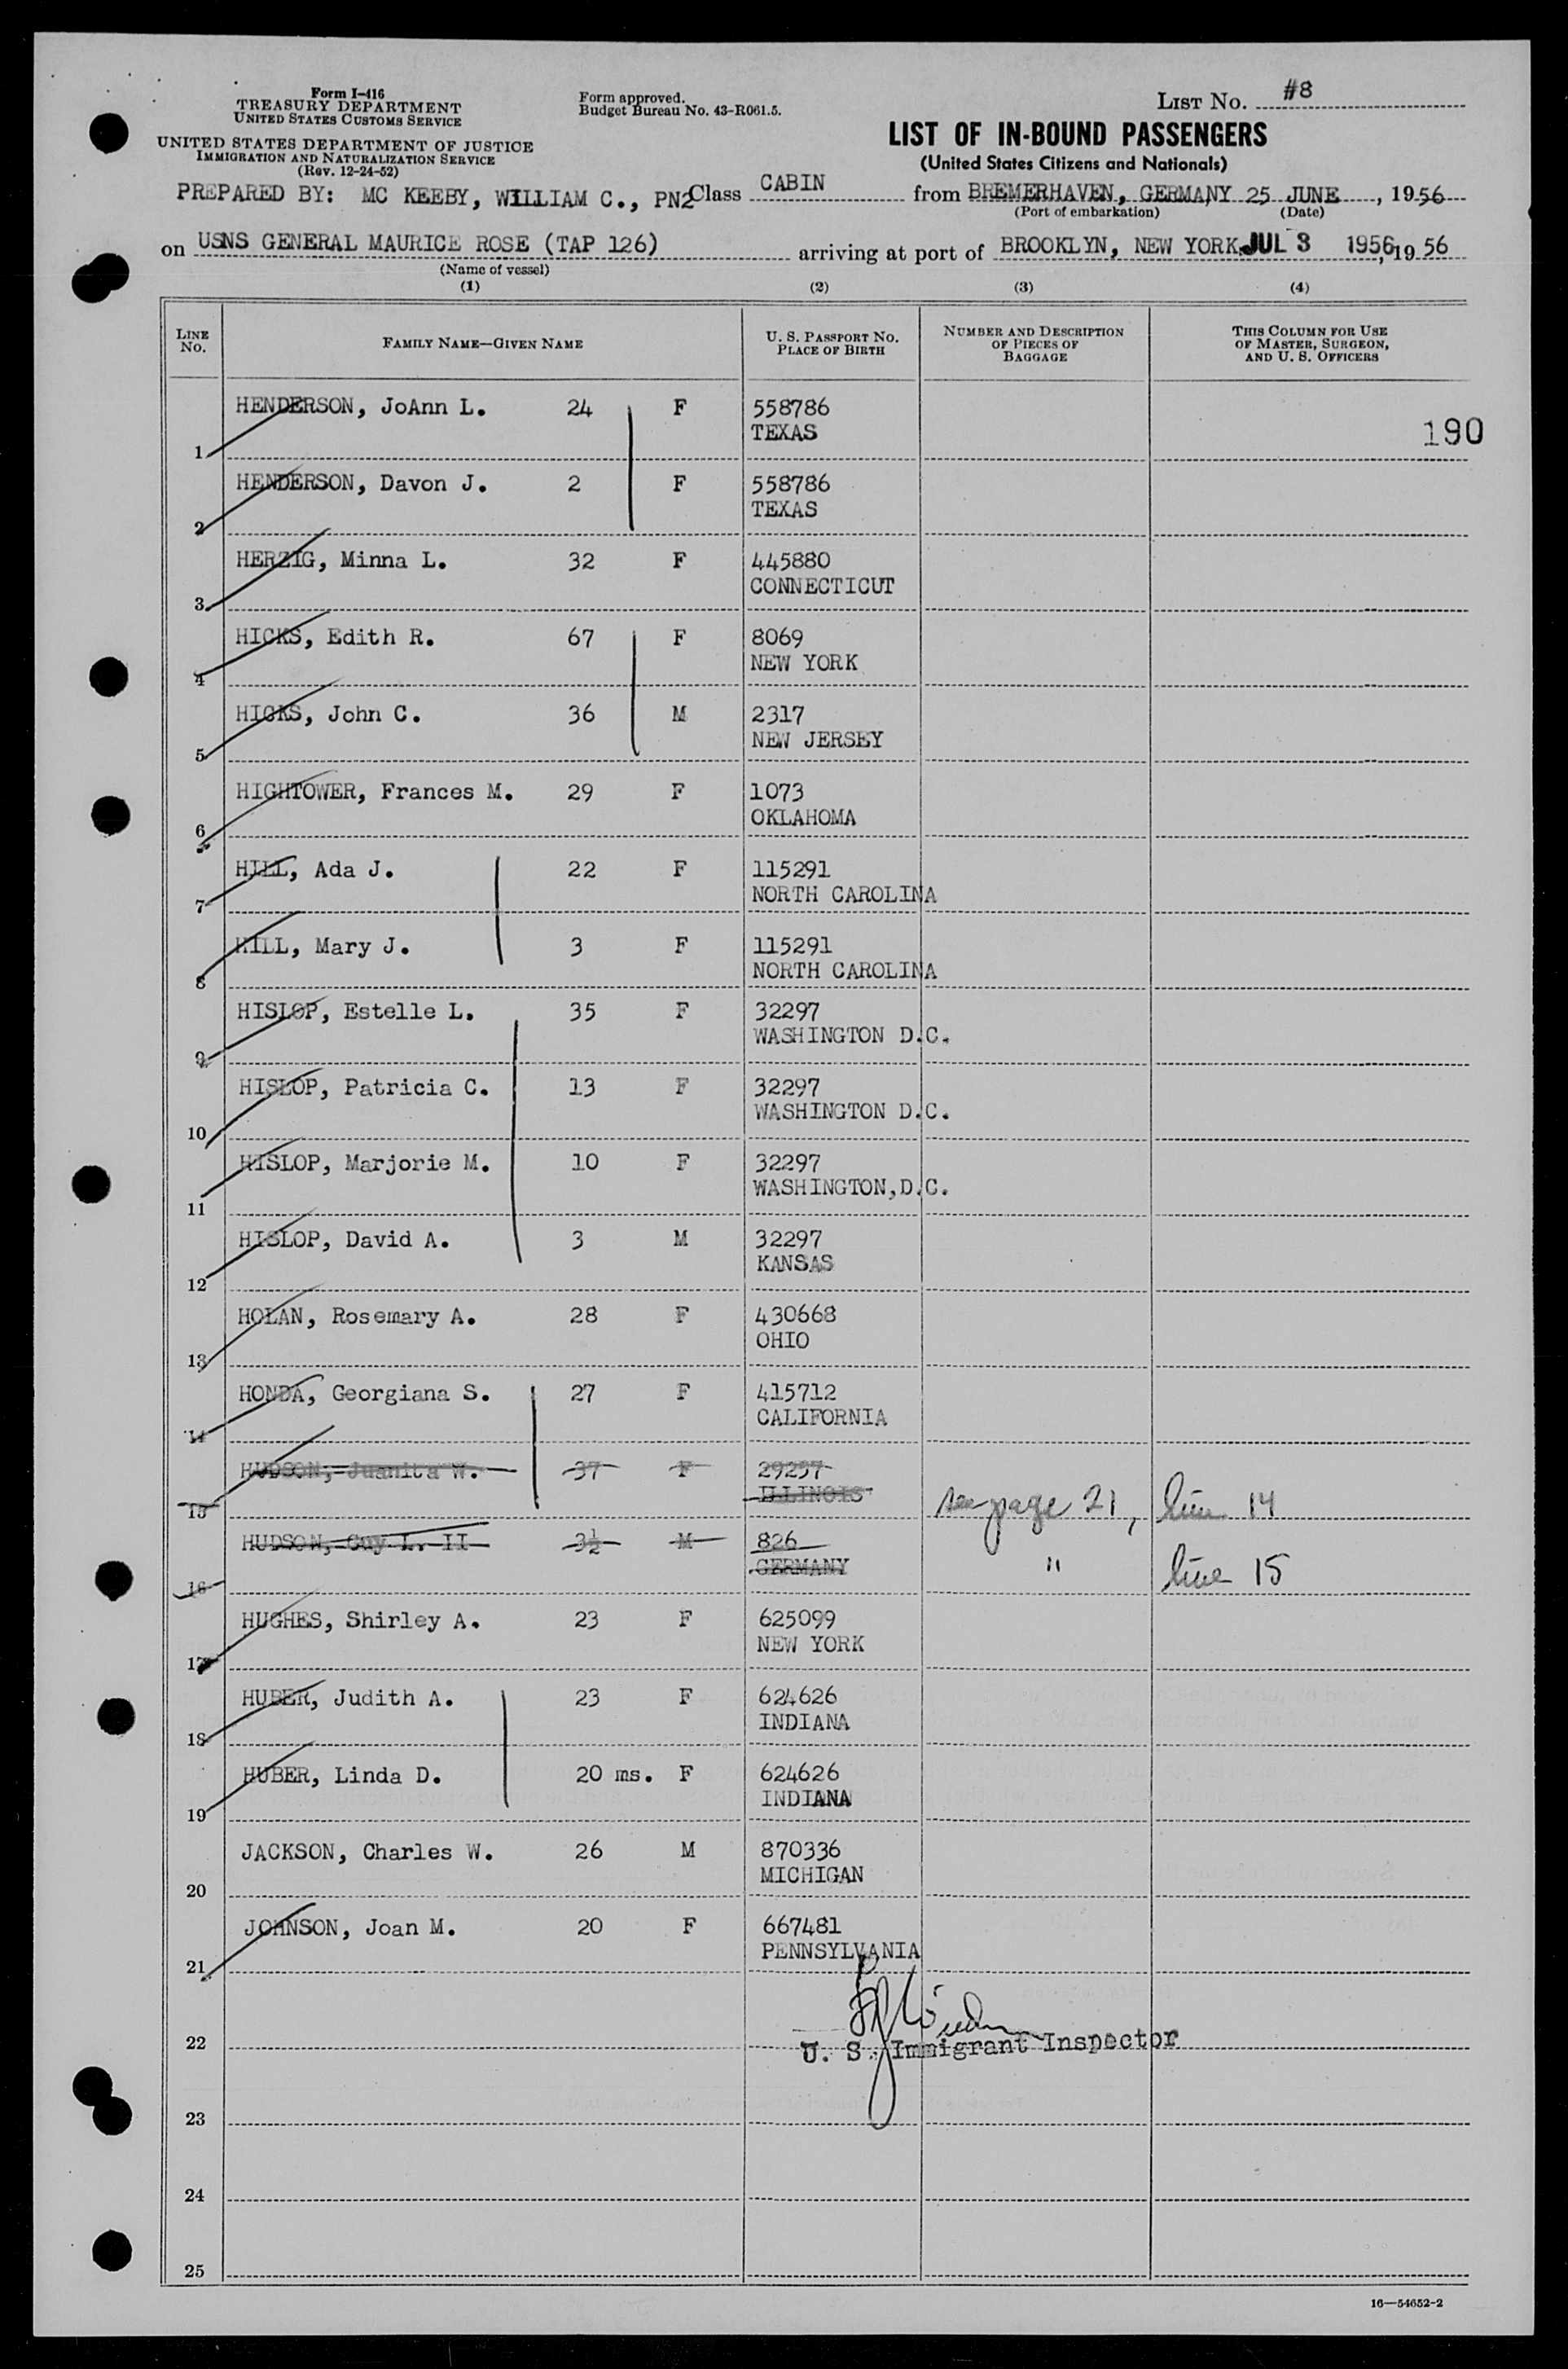 Form I-416
TREASURY DEPARTMENT
UNITED STATES CUSTOMS SERVICE
UNITED STATES DEPARTMENT OF JUSTICE
IMMIGRATION AND NATURALIZATION SERVICE
(Rev. 12-24-52)
Form approved.
Budget Bureau No. 43-R061.5.
LIST No. #8
LIST OF IN-BOUND PASSENGERS
(United States Citizens and Nationals)
PREPARED BY: MC KEEBY, WILLIAM C., PN2 Class CABIN from BREMERHAVEN, GERMANY 25 JUNE, 1956
(Port of embarkation) (Date)
on USNS GENERAL MAURICE ROSE (TAP 126) arriving at port of BROOKLYN, NEW YORK JUL 3 1956, 19 56
(Name of vessel)
(1) (2) (3) (4)
LINE No. FAMILY NAME—GIVEN NAME U. S. PASSPORT No. PLACE OF BIRTH NUMBER AND DESCRIPTION OF PIECES OF BAGGAGE THIS COLUMN FOR USE OF MASTER, SURGEON, AND U. S. OFFICERS
HENDERSON, JoAnn L. 24 F 558786
1 TEXAS 190
HENDERSON, Davon J. 2 F 558786
2 TEXAS
HERZIG, Minna L. 32 F 445880
3 CONNECTICUT
HICKS, Edith R. 67 F 8069
4 NEW YORK
HICKS, John C. 36 M 2317
5 NEW JERSEY
HIGHTOWER, Frances M. 29 F 1073
6 OKLAHOMA
HILL, Ada J. 22 F 115291
7 NORTH CAROLINA
HILL, Mary J. 3 F 115291
8 NORTH CAROLINA
HISLOP, Estelle L. 35 F 32297
9 WASHINGTON D.C.
HISLOP, Patricia C. 13 F 32297
10 WASHINGTON D.C.
HISLOP, Marjorie M. 10 F 32297
11 WASHINGTON,D.C.
HISLOP, David A. 3 M 32297
12 KANSAS
HOLAN, Rosemary A. 28 F 430668
13 OHIO
HONDA, Georgiana S. 27 F 415712
14 CALIFORNIA
HUDSON, Juanita W. 37 F 29257
15 ILLINOIS see page 21, line 14
HUDSON, Guy L. II 3½ M 826
16 GERMANY " line 15
HUGHES, Shirley A. 23 F 625099
17 NEW YORK
HUBER, Judith A. 23 F 624626
18 INDIANA
HUBER, Linda D. 20 ms. F 624626
19 INDIANA
JACKSON, Charles W. 26 M 870336
20 MICHIGAN
JOHNSON, Joan M. 20 F 667481
21 PENNSYLVANIA
22 U. S. Immigrant Inspector
23
24
25
16—54652-2